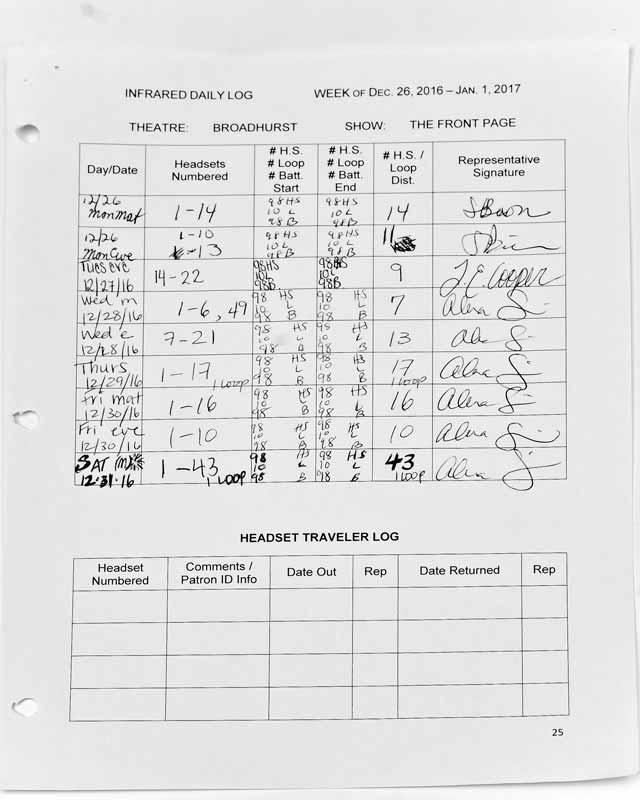 INFRARED DAILY LOG WEEK OF DEC. 26, 2016 – JAN. 1, 2017
THEATRE: BROADHURST SHOW: THE FRONT PAGE
Day/Date Headsets Numbered # H.S. # Loop # Batt. Start # H.S. # Loop # Batt. End # H.S. / Loop Dist. Representative Signature
12/26 Mon Mat 1-14 98 HS 10 L 98 B 98 HS 10 L 98 B 14
12/26 Mon Eve 1-10 -13 98 HS 10 L 98 B 98 HS 10 L 98 B 11
Tues eve 12/27/16 14-22 98HS 10L 98B 98HS 10L 98B 9 J.E. Cooper
Wed m 12/28/16 1-6, 49 98 HS 10 L 98 B 98 HS 10 L 98 B 7 Alena
Wed e 12/28/16 7-21 98 HS 10 L 98 B 98 HS 10 L 98 B 13
Thurs 12/29/16 1-17 1 Loop 98 HS 10 L 98 B 98 HS 10 L 98 B 17 1 Loop Alena
Fri mat 12/30/16 1-16 98 HS 10 L 98 B 98 HS 10 L 98 B 16 Alena
Fri eve 12/30/16 1-10 98 HS 10 L 98 B 98 HS 10 L 98 B 10 Alena
SAT 12.31.16 1-43 1 LOOP 98 HS 10 L 98 B 98 HS 10 L 98 B 43 1 LOOP Alena
HEADSET TRAVELER LOG
Headset Numbered Comments / Patron ID Info Date Out Rep Date Returned Rep
25